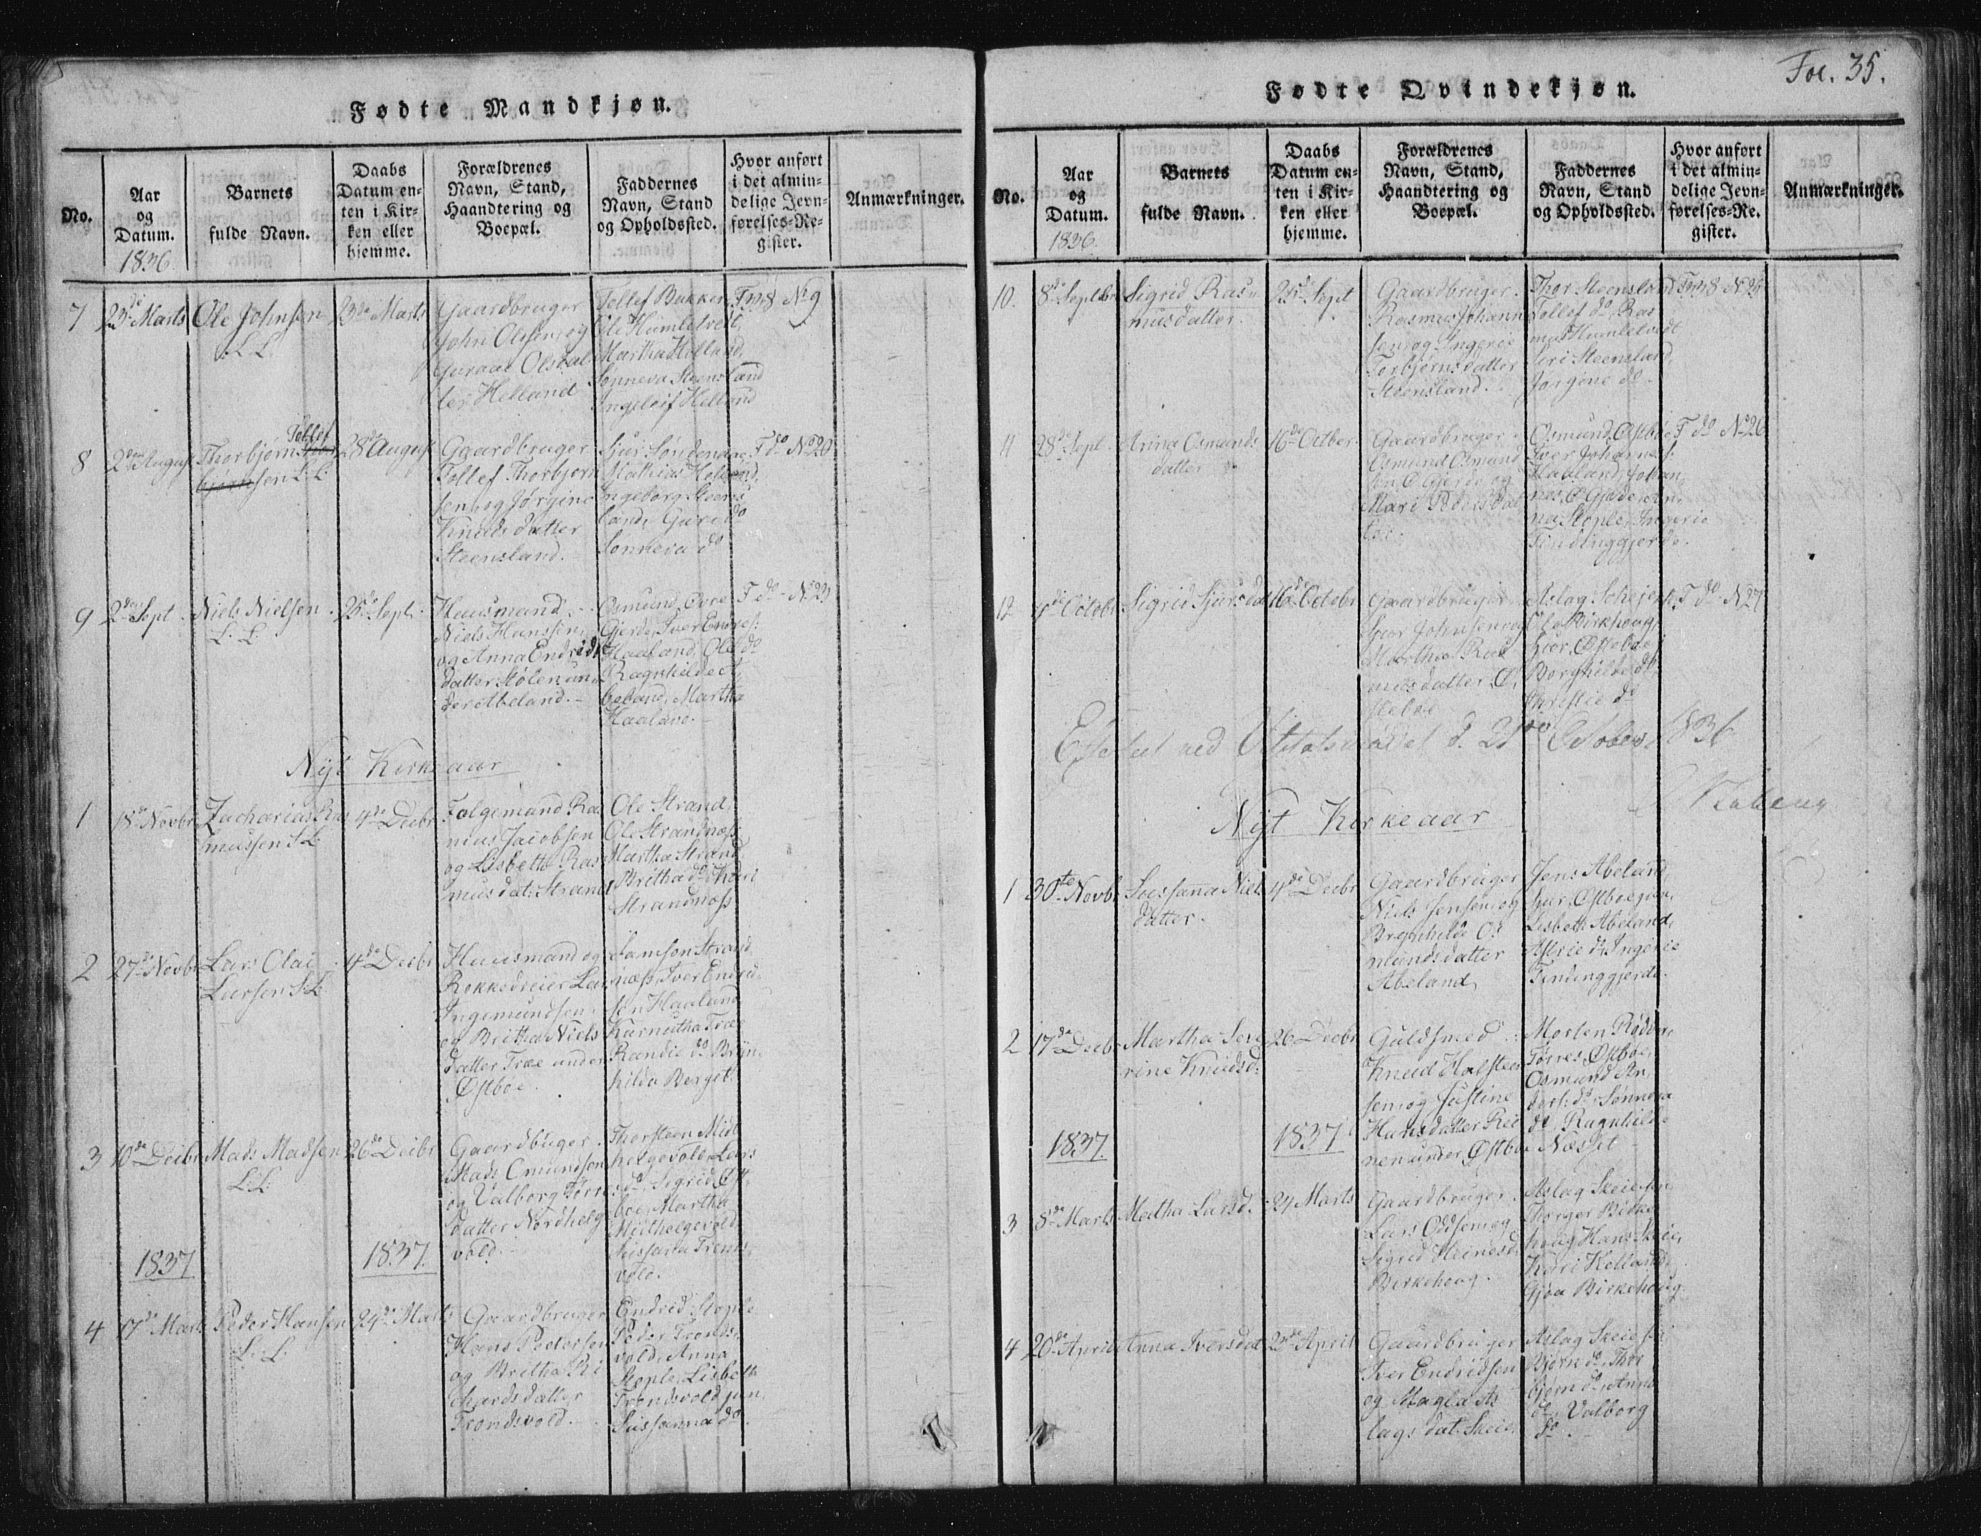 Fødte Mandkjøn.
No.
Aar
og
Datum.
1836
Barnets
fulde Navn.
Daabs
Datum en-
ten i Kir-
ken eller
hjemme.
Forældrenes
Navn, Stand,
Haandtering og
Boepæl.
Faddernes
Navn, Stand
og Opholdssted.
Hvor anført
i det almin-
delige Jevn-
førelses-Re-
gister.
Anmærkninger.
7
23de Marts
Ole Johnsen
L. L.
23de Marts
Gaardbruger
John Olsen og
Guraae Olsdat
ter Helland
Tollef Bakken
Ole Humletvedt,
Martha Helland,
Sønneva Steensland
Ingeleif Helland
F 198 No 9
8
2den August
Thorbjørn Tollef
sen L. L.
28de August
Gaardbruger
Tollef Thorbjørn
sen og Jørgine
Knudsdatter
Steensland.
Sjur Søndenaae
Mathias Helland,
Ingeborg Steens
land, Guro do
Sønneva do
F do No 20
9
2den Sept.
Niels Nielsen
L. L.
25de Sept.
Huusmand
Niels Hanssen
og Anna Endrids
datter Stølen un
der Abeland.
Osmund Øvre
Gjerde, Iver Endres:
Haaland, Ole do
Ragnhilde
beland, Martha
Haaland.
F do No 23
Nyt Kirkeaar
1
18de Novbr
Zacharias Ras
mussen L. L.
4de Decbr
Følgemand Ras
mus Jacobsen
og Lisbeth Ras
musdat: Strand
Ole Strand,
Ole Strandnæss
Martha Strand,
Britha do Kari
Strandnæss
2
27de Novbr
Lars Olai
Larsen L. L.
4de Decbr
Huusmand og
Rokkedreier Lars
Ingemundsen
og Britha Niels
datter Træe under
Østbøe.
Samson Strand
næss, Iver Endrid
sen Haaland
Karnutha Træe
Randie do Bryn
hilda Berget.
3
10de Decbr
Mads Madsen
L. L.
26de Decbr
Gaardbruger
Mads Omundsen
og Valborg Tørres
datter Nordhelg
vold.
Thorsteen Mid
helgevold, Lars
do, Sigrid Øst
bøe, Martha
Midthelgevold
Sussanna Tronds
vold.
1837
1837.
4
17de Marts
Peder Hansen
L. L.
24de Marts
Gaardbruger
Hans Pedersen
og Britha Ri
chardsdatter
Trondsvold.
Endrid Stople
Peder Tronds
vold, Anna
Stople, Lisbeth
Trondsvold jun,
Sussanna do
Fol. 35.
Fødte Qvindekjøn.
No.
Aar
og
Datum.
1836
Barnets
fulde Navn.
Daabs
Datum en-
ten i Kir-
ken eller
hjemme.
Forældrenes
Navn, Stand,
Haandtering og
Boepæl.
Faddernes
Navn, Stand
og Opholdssted.
Hvor anført
i det almin-
delige Jevn-
førelses-Re-
gister.
Anmærkninger.
10.
8de Septbr
Sigrid Ras
musdatter.
25de Sept
Gaardbruger
Rasmus Johann
sen og Ingerie
Torbjørnsdatter
Steensland.
Thor Steensland
Tollef do, Ras
mus Humletvedt
Siri Steensland,
Jørgine do.
F 198 No 24
11
28de Sept.
Anna Osmunds
datter
16de Octber
Gaardbruger
Osmund Osmund
sen Ø Gjerde og
Mari Pedersdat
ter.
Osmund Østbøe
Iver Johannes:
Haaland, Johan
nes Ø Gjerde, An
na Stople, Ingerie
Findinggjerde.
F do No 26
12
4de Octobr
Sigrid Sjursdat
16de Octobr
Gaardbruger
Sjur Johnsen og
Martha Ras
musdatter Ø
stebøe
Aslag Schejen,
Ole Birkehoug,
Sjur Østebøe
Borghilde do,
Christie do
F do No 27
Efterseet ved Visitatsmødet d. 21de October 1836
Nyt Kirkeaar
1
30te Novbr
Sussana Niels
datter.
4de Decbr
Gaardbruger
Niels Jensen og
Brynhilde Os
mundsdatter
Abeland
Jens Abeland,
Sjur Østbøe jun,
Lisbeth Abeland,
Aserie do, Ingerie
Findinggjerde
2
17de Decbr
Martha Seve
rine Knudsd:
26 Decbr
Guldsmed
Knud Halsteen
sen og Justine
Hansdatter Rei
nen under Østbøe
Morten Røddne,
Tørres Østbøe,
Osmund An
ders: do, Sønneva
do, Ragnhilde
Næsset
1837.
1837
3
8de Marts
Metha Larsd.
24 Marts
Gaardbruger
Lars Oddsen og
Sigrid Heinesd.
Birkehoug.
Aslag Skeie jun,
Thorger Birke
houg Hans Skeie,
Kari Helland,
Gjøa Birkehoug
4
20de April
Anna Iversdat
23de April
Gaardbruger
Iver Endridsen
og Magla As
lagsdat. Skeie
Aslag Skeie
Bjørn do, Thor
bjørn do, Anna
do, Valborg
do